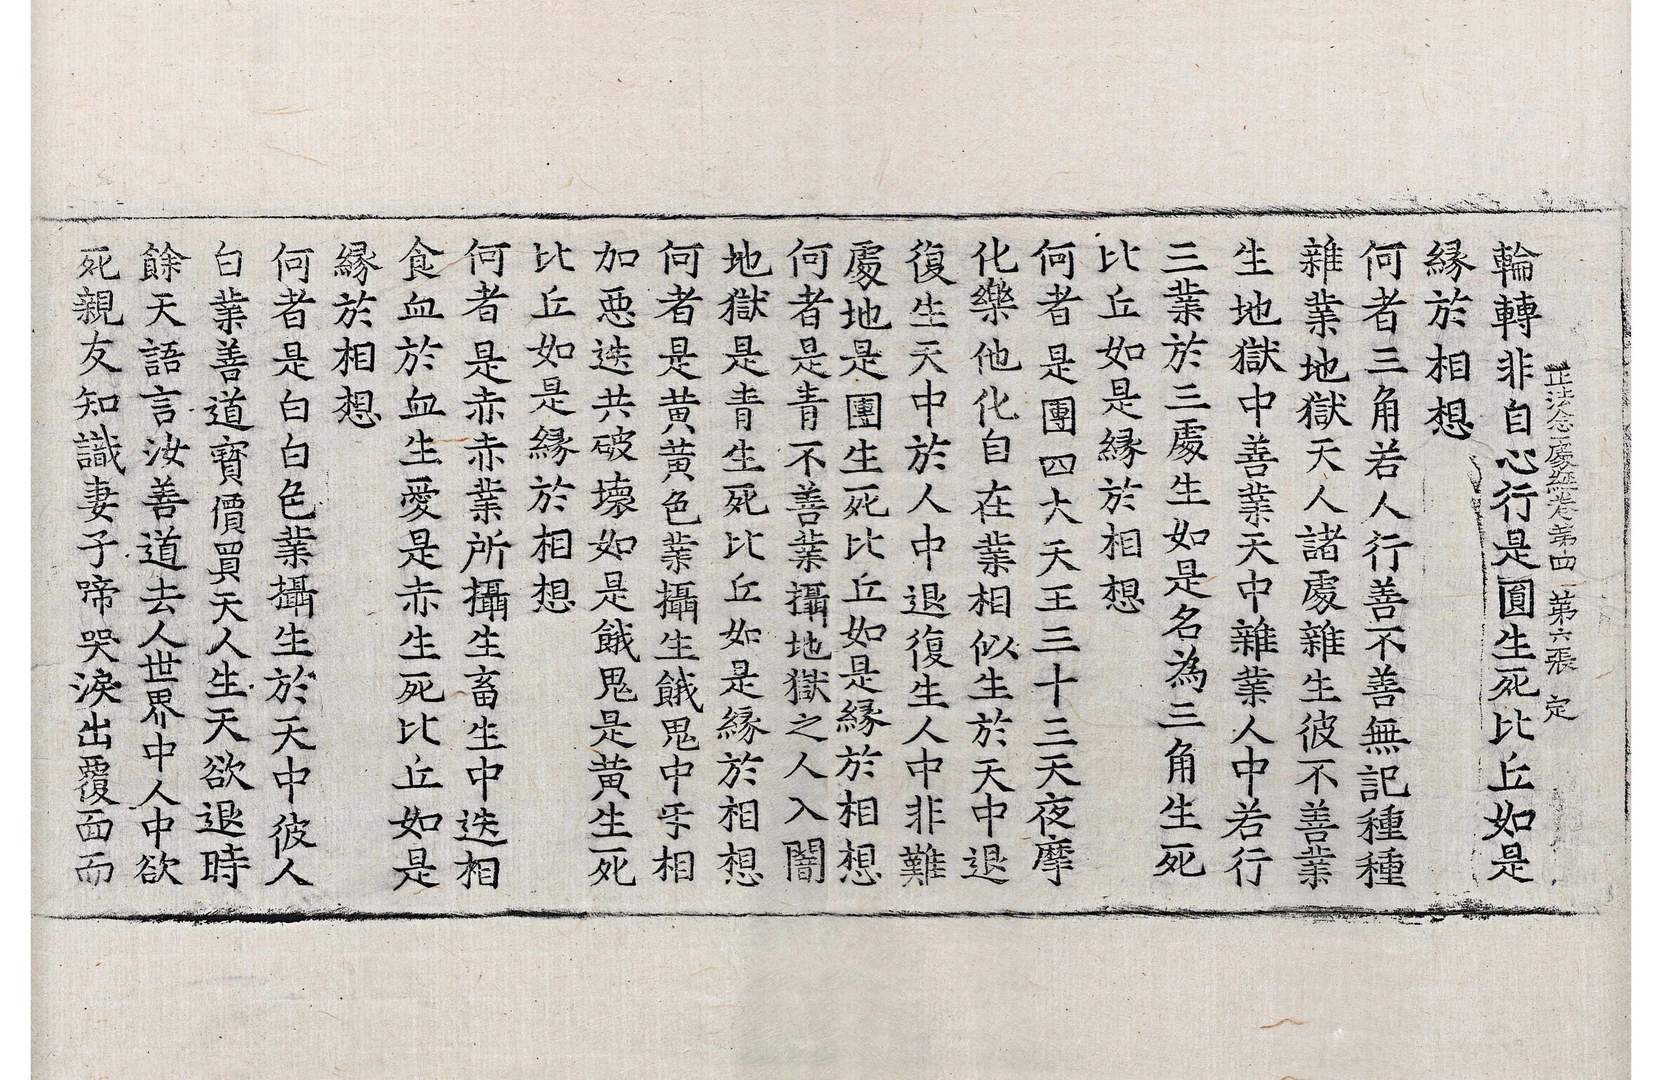 正法念處經卷第四 第六張 定
輪轉非自心行是圓生死比丘如是
縁於相想
何者三角若人行善不善無記種種
雜業地獄天人諸處雜生彼不善業
生地獄中善業天中雜業人中若行
三業於三處生如是名為三角生死
比丘如是縁於相想
何者是團四大天王三十三天夜摩
化樂他化自在業相似生於天中退
復生天中於人中退復生人中非難
處地是團生死比丘如是縁於相想
何者是青不善業攝地獄之人入闇
地獄是青生死比丘如是縁於相想
何者是黄黄色業攝生餓鬼中乎相
加惡迭共破壞如是餓鬼是黄生死
比丘如是縁於相想
何者是赤赤業所攝生畜生中迭相
食血於血生愛是赤生死比丘如是
縁於相想
何者是白白色業攝生於天中彼人
白業善道寳價買天人生天欲退時
餘天語言汝善道去人世界中人中欲
死親友知識妻子啼哭淚出覆面而